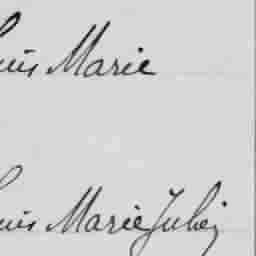 ouis Marie
ouis Marie Julien